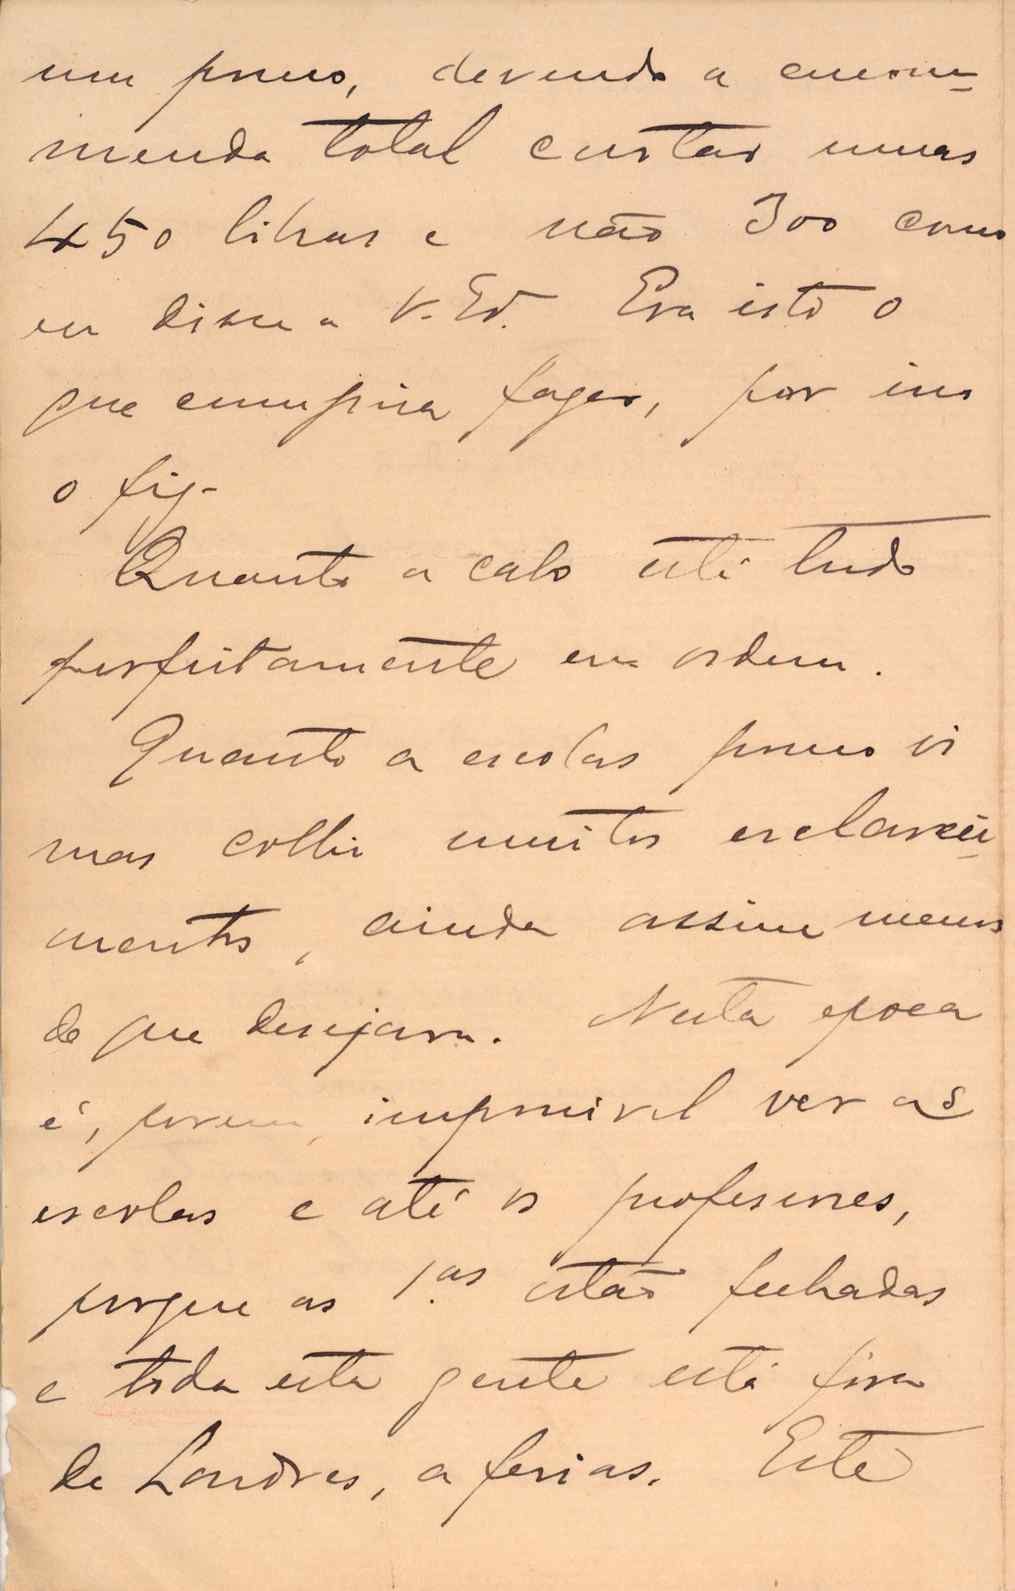 um pouco, devendo a encom-
menda total custar umas
450 libras e não 300 como
eu disse a V. Ex. Era isto o
que cumpria fazer, por isso
o fiz.
Quanto a cabo está tudo
perfeitamente em ordem.
Quanto a escolas pouco vi
mas colhi muitos esclareci-
mentos, ainda assim menos
do que desejava. Nesta epoca
é, porem, impossivel ver as
escolas e até os professores,
porque as 1.as estão fechadas
e toda esta gente está fora
de Londres, a ferias. Este